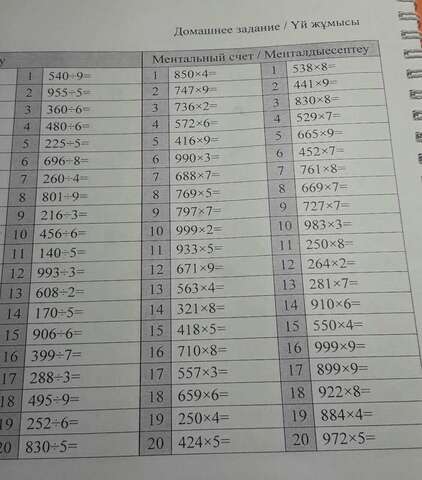 Домашнее задание / Үй жұмысы
у
Ментальный счет / Менталдыесептеу
1 540÷9= 1 850×4= 1 538×8=
2 955÷5= 2 747×9= 2 441×9=
3 360÷6= 3 736×2= 3 830×8=
4 480÷6= 4 572×6= 4 529×7=
5 225÷5= 5 416×9= 5 665×9=
6 696÷8= 6 990×3= 6 452×7=
7 260÷4= 7 688×7= 7 761×8=
8 801÷9= 8 769×5= 8 669×7=
9 216÷3= 9 797×7= 9 727×7=
10 456÷6= 10 999×2= 10 983×3=
11 140÷5= 11 933×5= 11 250×8=
12 993÷3= 12 671×9= 12 264×2=
13 608÷2= 13 563×4= 13 281×7=
14 170÷5= 14 321×8= 14 910×6=
15 906÷6= 15 418×5= 15 550×4=
16 399÷7= 16 710×8= 16 999×9=
17 288÷3= 17 557×3= 17 899×9=
18 495÷9= 18 659×6= 18 922×8=
19 252÷6= 19 250×4= 19 884×4=
20 830÷5= 20 424×5= 20 972×5=